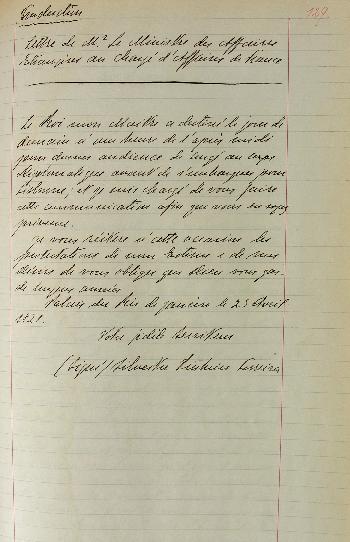 Traduction
129.
Lettre de Mr. Le Ministre des Affaires
Etrangères au chargé d'Affaires de France
Le Roi mon Maître a destiné le jour de
demain à une heure de l'après midi
pour donner audience de congé au corps
diplomatique avant de s'embarquer pour
Lisbonne, et je suis chargé de vous faire
cette communication afin que vous en soyez
prévenu.
Je vous réitère à cette occasion les
protestations de mon estime & de mes
désirs de vous obliger que Dieu vous gar-
de longues années
Palais du Rio de janeiro le 23 Avril
1821.
Votre fidèle Serviteur
(Signé) Silvestre Pinheiro Ferreira